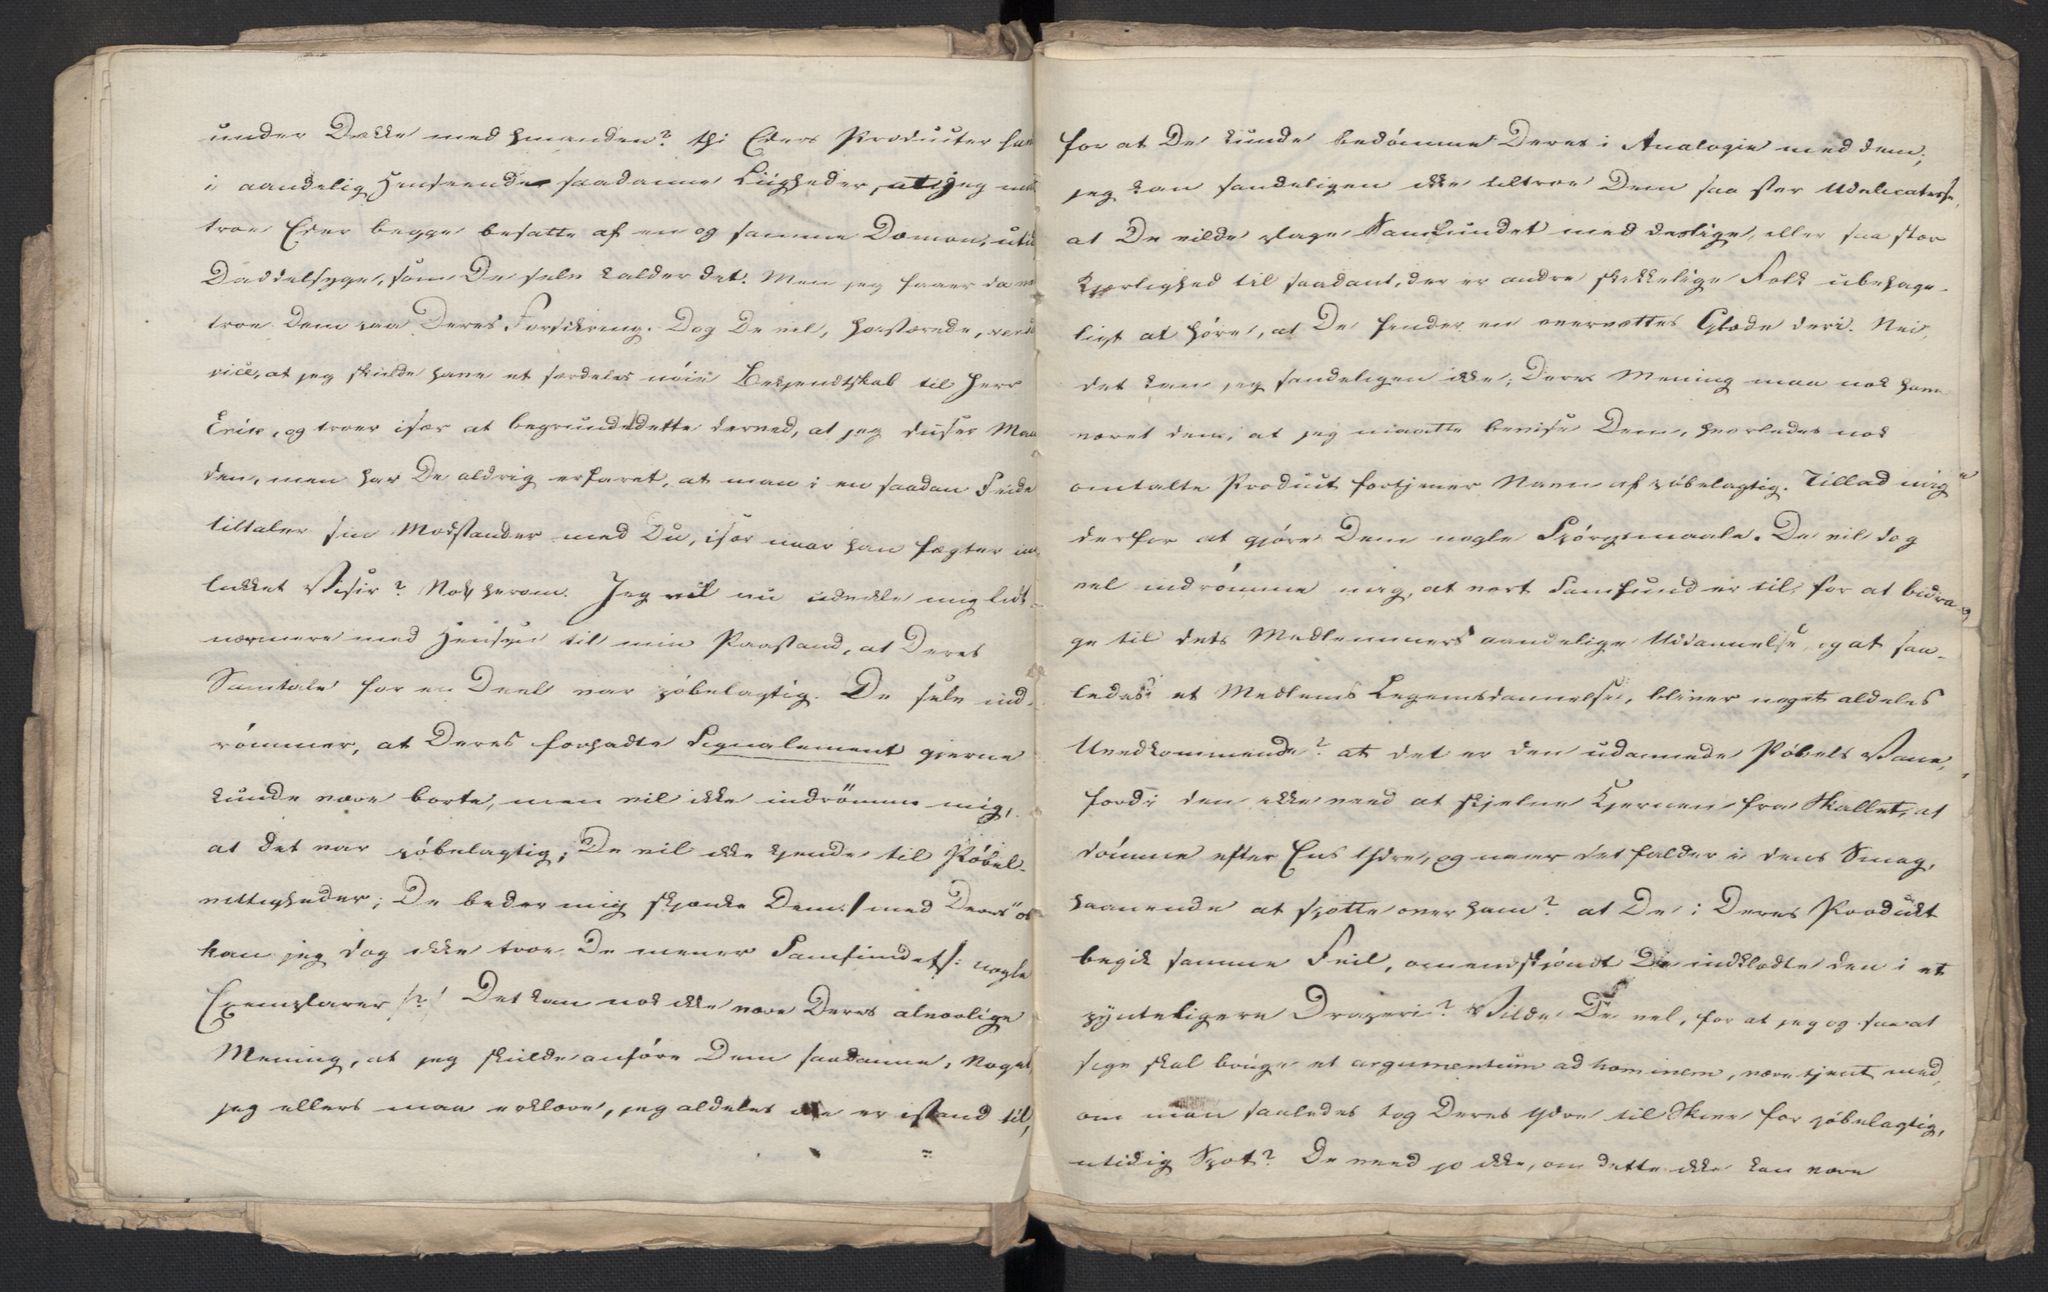 under Dække med hmanden? thi Eders Producter har
i aandelig Henseende saadanne Liigheder, at jeg maa
troe Eder begge besatte af en og samme Dæmon, utid
Daddelsyge, som De selv kalder det. Men jeg faaer da vel
troe Dem paa Deres Forsikring. Dog De vil, høistærede, vende
vice, at jeg skulde have et særdeles nøie Bekjendtskab til Herr
Erik, og troer især at begrunde dette derved, at jeg duser Man
den, men har De aldrig erfaret, at man i en saadan Feide
tiltaler sin Modstander med Du, især naar han fægter med
lukket Visir? Nok herom. Jeg vil nu udvikle mig lidt
nærmere med Hensyn til min Paastand, at Deres
Samtale for en Deel var pöbelagtig. De selv ind-
römmer, at Deres forhadte Signalement gjerne
kunde være borte, men vil ikke indrömme mig,
at det var pöbelagtig; De vil ikke kjende til Pöbel-
vittigheder; De beder mig skjænke Dem /med Deres "os
kan jeg dog ikke troe De mener Samfundet/: nogle
Exemplarer /?/ Det kan nok ikke være Deres alvorlige
Mening, at jeg skulde anföre Dem saadanne, Noget,
jeg ellers maa erklære, jeg aldeles ikke er istand til,
for at De kunde bedömme Deres i Analogie med dem;
jeg kan sandeligen ikke tiltroe Dem saa stor Udelicatesse,
at De vilde plage Samfundet med deslige, eller saa stor
Kjærlighed til saadant, der er andre skikkelige Folk ubehage-
ligt at höre, at De finder en overvættes Glæde deri. Nei,
det kan jeg sandeligen ikke; Deres Mening maa nok have
været den, at jeg maatte bevise Dem, hvorledes nok
omtalte Product fortjener Navn af pöbelagtig. Tillad mig
derfor at gjöre Dem nogle Spörgsmaale. De vil dog
vel indrömme mig, at vort Samfund er til for at bidra-
ge til dets Medlemmers aandelige Uddannelse, og at saa-
ledes et Medlems Legemsdannelse, bliver noget aldeles
Uvedkommende? at det er den udannede Pöbels Vane,
fordi den ikke veed at skjelne Kjernen fra Skallet, at
dömme efter Ens Ydre, og naar det falder i dens Smag,
haanende at spotte over ham? at De i Deres Produkt
begik samme Feil, omendskjöndt De indklædte den i et
pynteligere Draperi? Vilde De vel, for at jeg og saa at
sige skal bruge et argumentum ad hominem, være tjent med,
om man saaledes tog Deres Ydre til Skive for pöbelagtig,
utidig Spot? De veed jo ikke, om dette ikke kan være